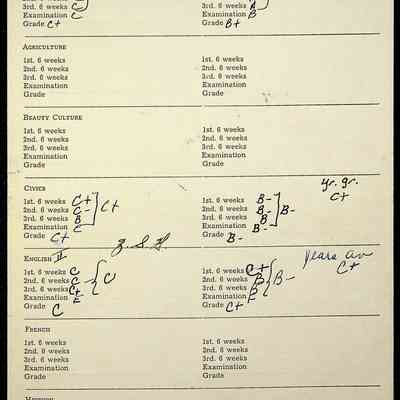 3rd. 6 weeks C 3rd. 6 weeks B
Examination C Examination B
Grade C+ Grade B+
AGRICULTURE
1st. 6 weeks 1st. 6 weeks
2nd. 6 weeks 2nd. 6 weeks
3rd. 6 weeks 3rd. 6 weeks
Examination Examination
Grade Grade
BEAUTY CULTURE
1st. 6 weeks 1st. 6 weeks
2nd. 6 weeks 2nd. 6 weeks
3rd. 6 weeks 3rd. 6 weeks
Examination Examination
Grade Grade
CIVICS yr. gr.
1st. 6 weeks C+ 1st. 6 weeks B- C+
2nd. 6 weeks C- C+ 2nd. 6 weeks B- B-
3rd. 6 weeks B 3rd. 6 weeks B
Examination C Examination B-
Grade C+ Grade B-
ENGLISH II years av
1st. 6 weeks C 1st. 6 weeks C+ C+
2nd. 6 weeks C- C 2nd. 6 weeks B B-
3rd. 6 weeks C+ 3rd. 6 weeks B
Examination E Examination F
Grade C Grade C+
FRENCH
1st. 6 weeks 1st. 6 weeks
2nd. 6 weeks 2nd. 6 weeks
3rd. 6 weeks 3rd. 6 weeks
Examination Examination
Grade Grade